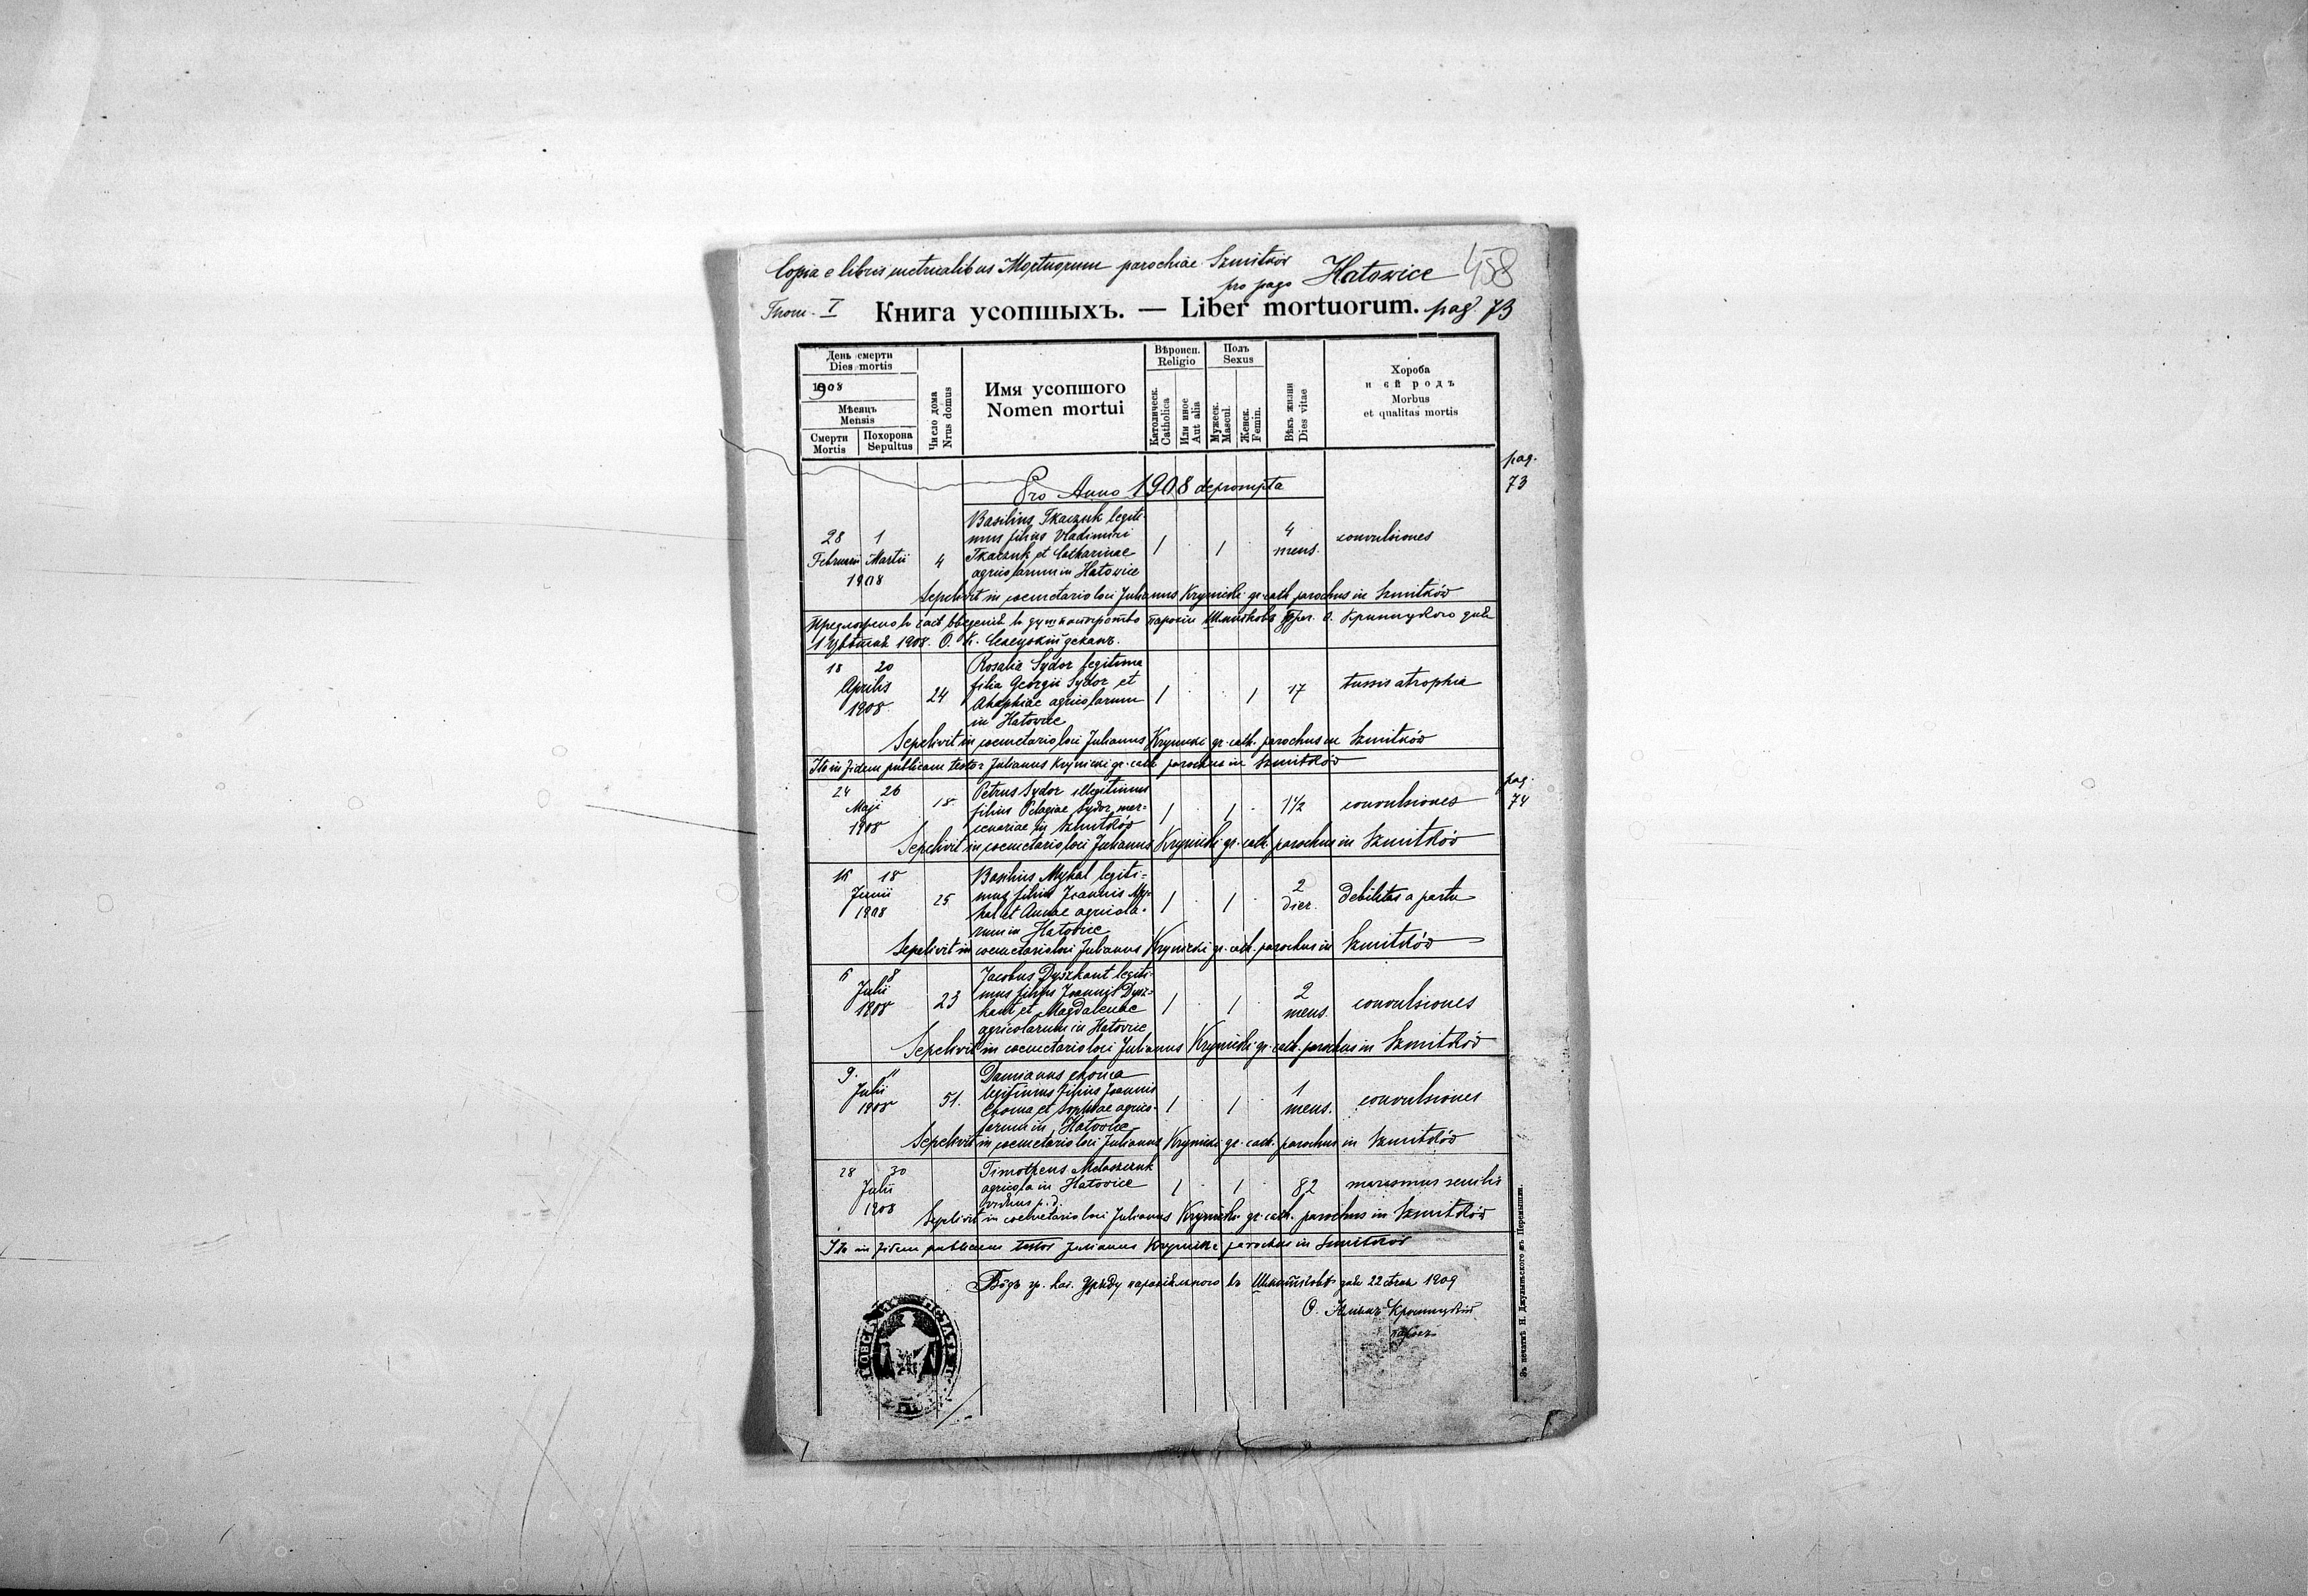 Copia e libris metricalibus Mortuorum parochiae Szmitków
pro pago Hatowice 458
Tom. I Книга усопшыхъ. — Liber mortuorum. pag. 73
День смерти
Dies mortis
1908
Мѣсяцъ
Mensis
Смерти
Mortis
Похорона
Sepultus
Число дома
Nrus domus
Имя усопшого
Nomen mortui
Вѣроисп.
Religio
Католическ.
Catholica
Или иное
Aut alia
Полъ
Sexus
Мужеск.
Mascul.
Женск.
Femin.
Вѣкъ жизни
Dies vitae
Хороба
и єй родъ
Morbus
et qualitas mortis
pag.
73
Pro Anno 1908 deprompta
Basilius Tkaczuk legiti-
mus filius Vladimiri
Tkaczuk et Catharinae
agricolarum in Hatowice
28 1
Februarii Martii
1908
4
1 . 1 .
4
mens.
convulsiones
Sepelivit in coemetario loci Julianus Krynicki gr. cath. parochus in Szmitków
1908. О. К. деканъ.
18 20
Aprilis
1908
24
Rosalia Sydor legitima
filia Georgii Sydor et
Ahaphiae agricolarum
in Hatowice
1 . . 1
17
tussis atrophia
Sepelivit in coemetario loci Julianus Krynicki gr. cath. parochus in Szmitków
Ita in fidem publicam testor Julianus Krynicki gr. cath. parochus in Szmitków
pag.
74
24 26
Maji
1908
18.
Petrus Sydor illegitimus
filius Pelagiae Sydor mer-
cenariae in Szmitków
1 1 .
1 1/2
convulsiones
Sepelivit in coemetario loci Julianus Krynicki gr. cath. parochus in Szmitków
16 18
Junii
1908
25
Basilius Myhal legiti-
mus filius Joannis My-
hal et Annae agricola-
rum in Hatowice
1 . 1 .
2
dier.
debilitas a partu
Sepelivit in coemetario loci Julianus Krynicki gr. cath. parochus in Szmitków
6 8
Julii
1908
23
Jacobus Dyszkant legiti-
mus filius Joannis Dysz-
kant et Magdalenae
agricolarum in Hatowice
1 . 1 .
2
mens.
convulsiones
Sepelivit in coemetario loci Julianus Krynicki gr. cath. parochus in Szmitków
9. 11
Julii
1908
51.
Damianus Choma
legitimus filius Joannis
Choma et Sophiae agrico-
larum in Hatowice
1 . 1 .
1
mens.
convulsiones
Sepelivit in coemetario loci Julianus Krynicki gr. cath. parochus in Szmitków
28 30
Julii
1908
Timotheus
agricola in Hatowice
viduus p. d.
1 . 1 .
82
marasmus senilis
Sepelivit in coemetario loci Julianus Krynicki gr. cath. parochus in Szmitków
Ita in fidem publicam testor Julianus Krynicki parochus in Szmitków
Водъ гр. кат. Уряду парохіяльного въ Шмитковѣ дня 22 1909
О. Крыницкій
Въ печатнѣ Н. Джулынского въ Перемышли.